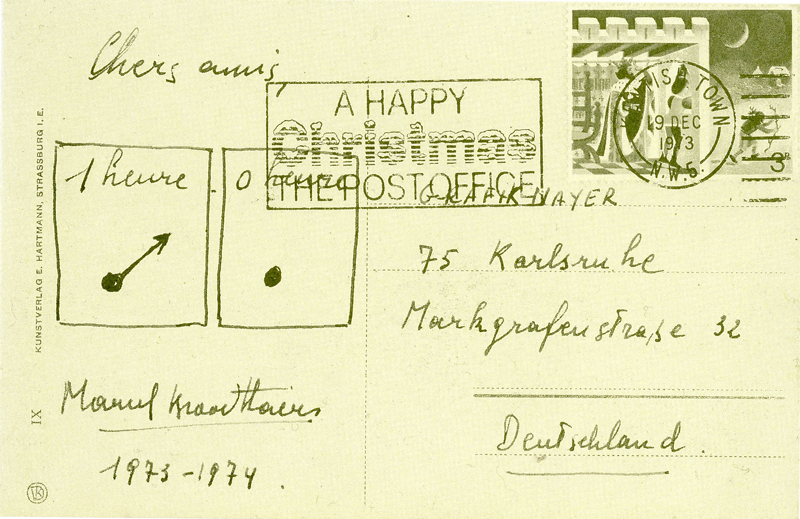 Chers amis,
A HAPPY
Christmas
THE POST OFFICE
KENTISH TOWN
19 DEC
1973
N.W.5.
3P
1 heure
0 heure
GRAFIK MAYER
75 Karlsruhe
Markgrafenstraße 32
Deutschland.
Marcel Broodthaers
1973-1974.
KUNSTVERLAG E. HARTMANN, STRASSBURG I. E.
IX